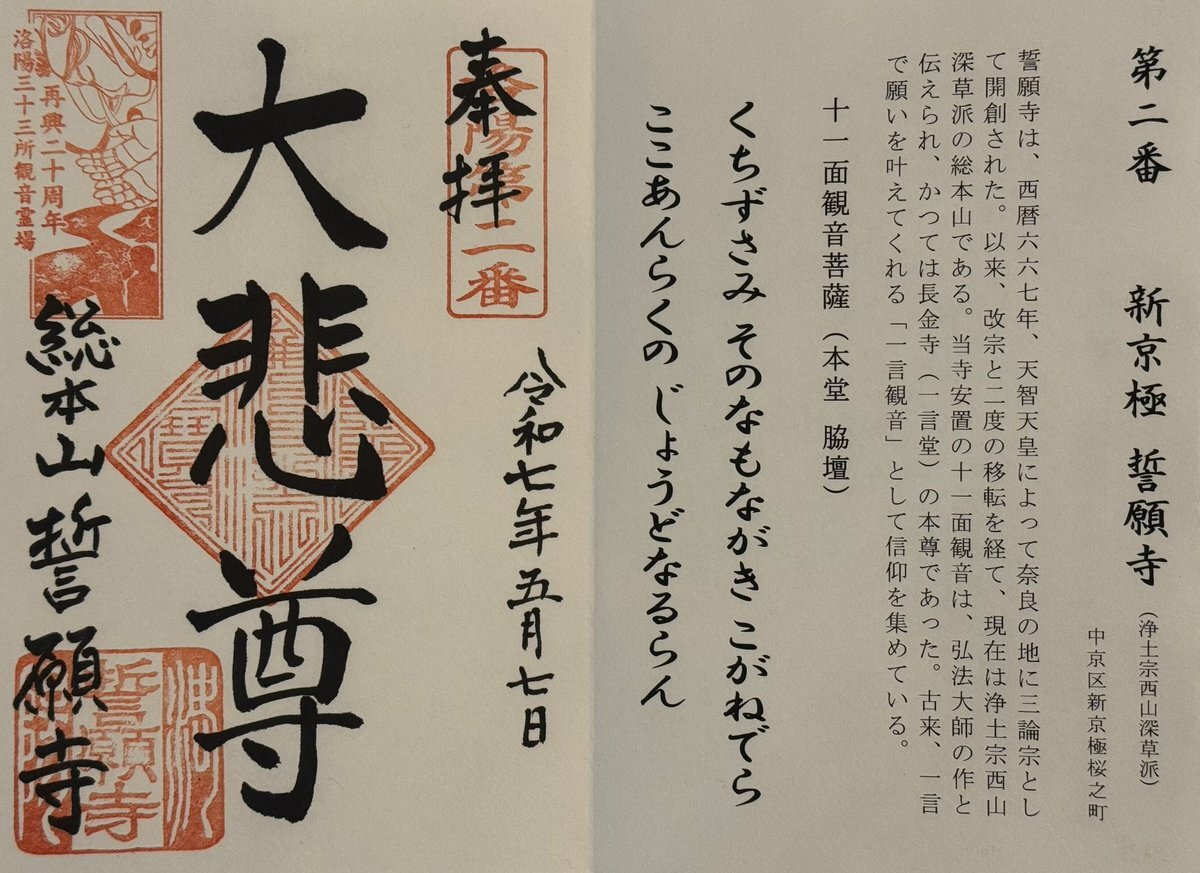 第二番　新京極　誓願寺（浄土宗西山深草派）
中京区新京極桜之町
誓願寺は、西暦六六七年、天智天皇によって奈良の地に三論宗とし
て開創された。以来、改宗と二度の移転を経て、現在は浄土宗西山
深草派の総本山である。当寺安置の十一面観音は、弘法大師の作と
伝えられ、かつては長金寺（一言堂）の本尊であった。古来、一言
で願いを叶えてくれる「一言観音」として信仰を集めている。
十一面観音菩薩（本堂　脇壇）
くちずさみ そのなもながき こがねでら
ここあんらくの じょうどなるらん
奉拝
洛陽第二番
令和七年五月七日
大悲尊
再興二十周年
洛陽三十三所観音霊場
総本山誓願寺
誓願寺